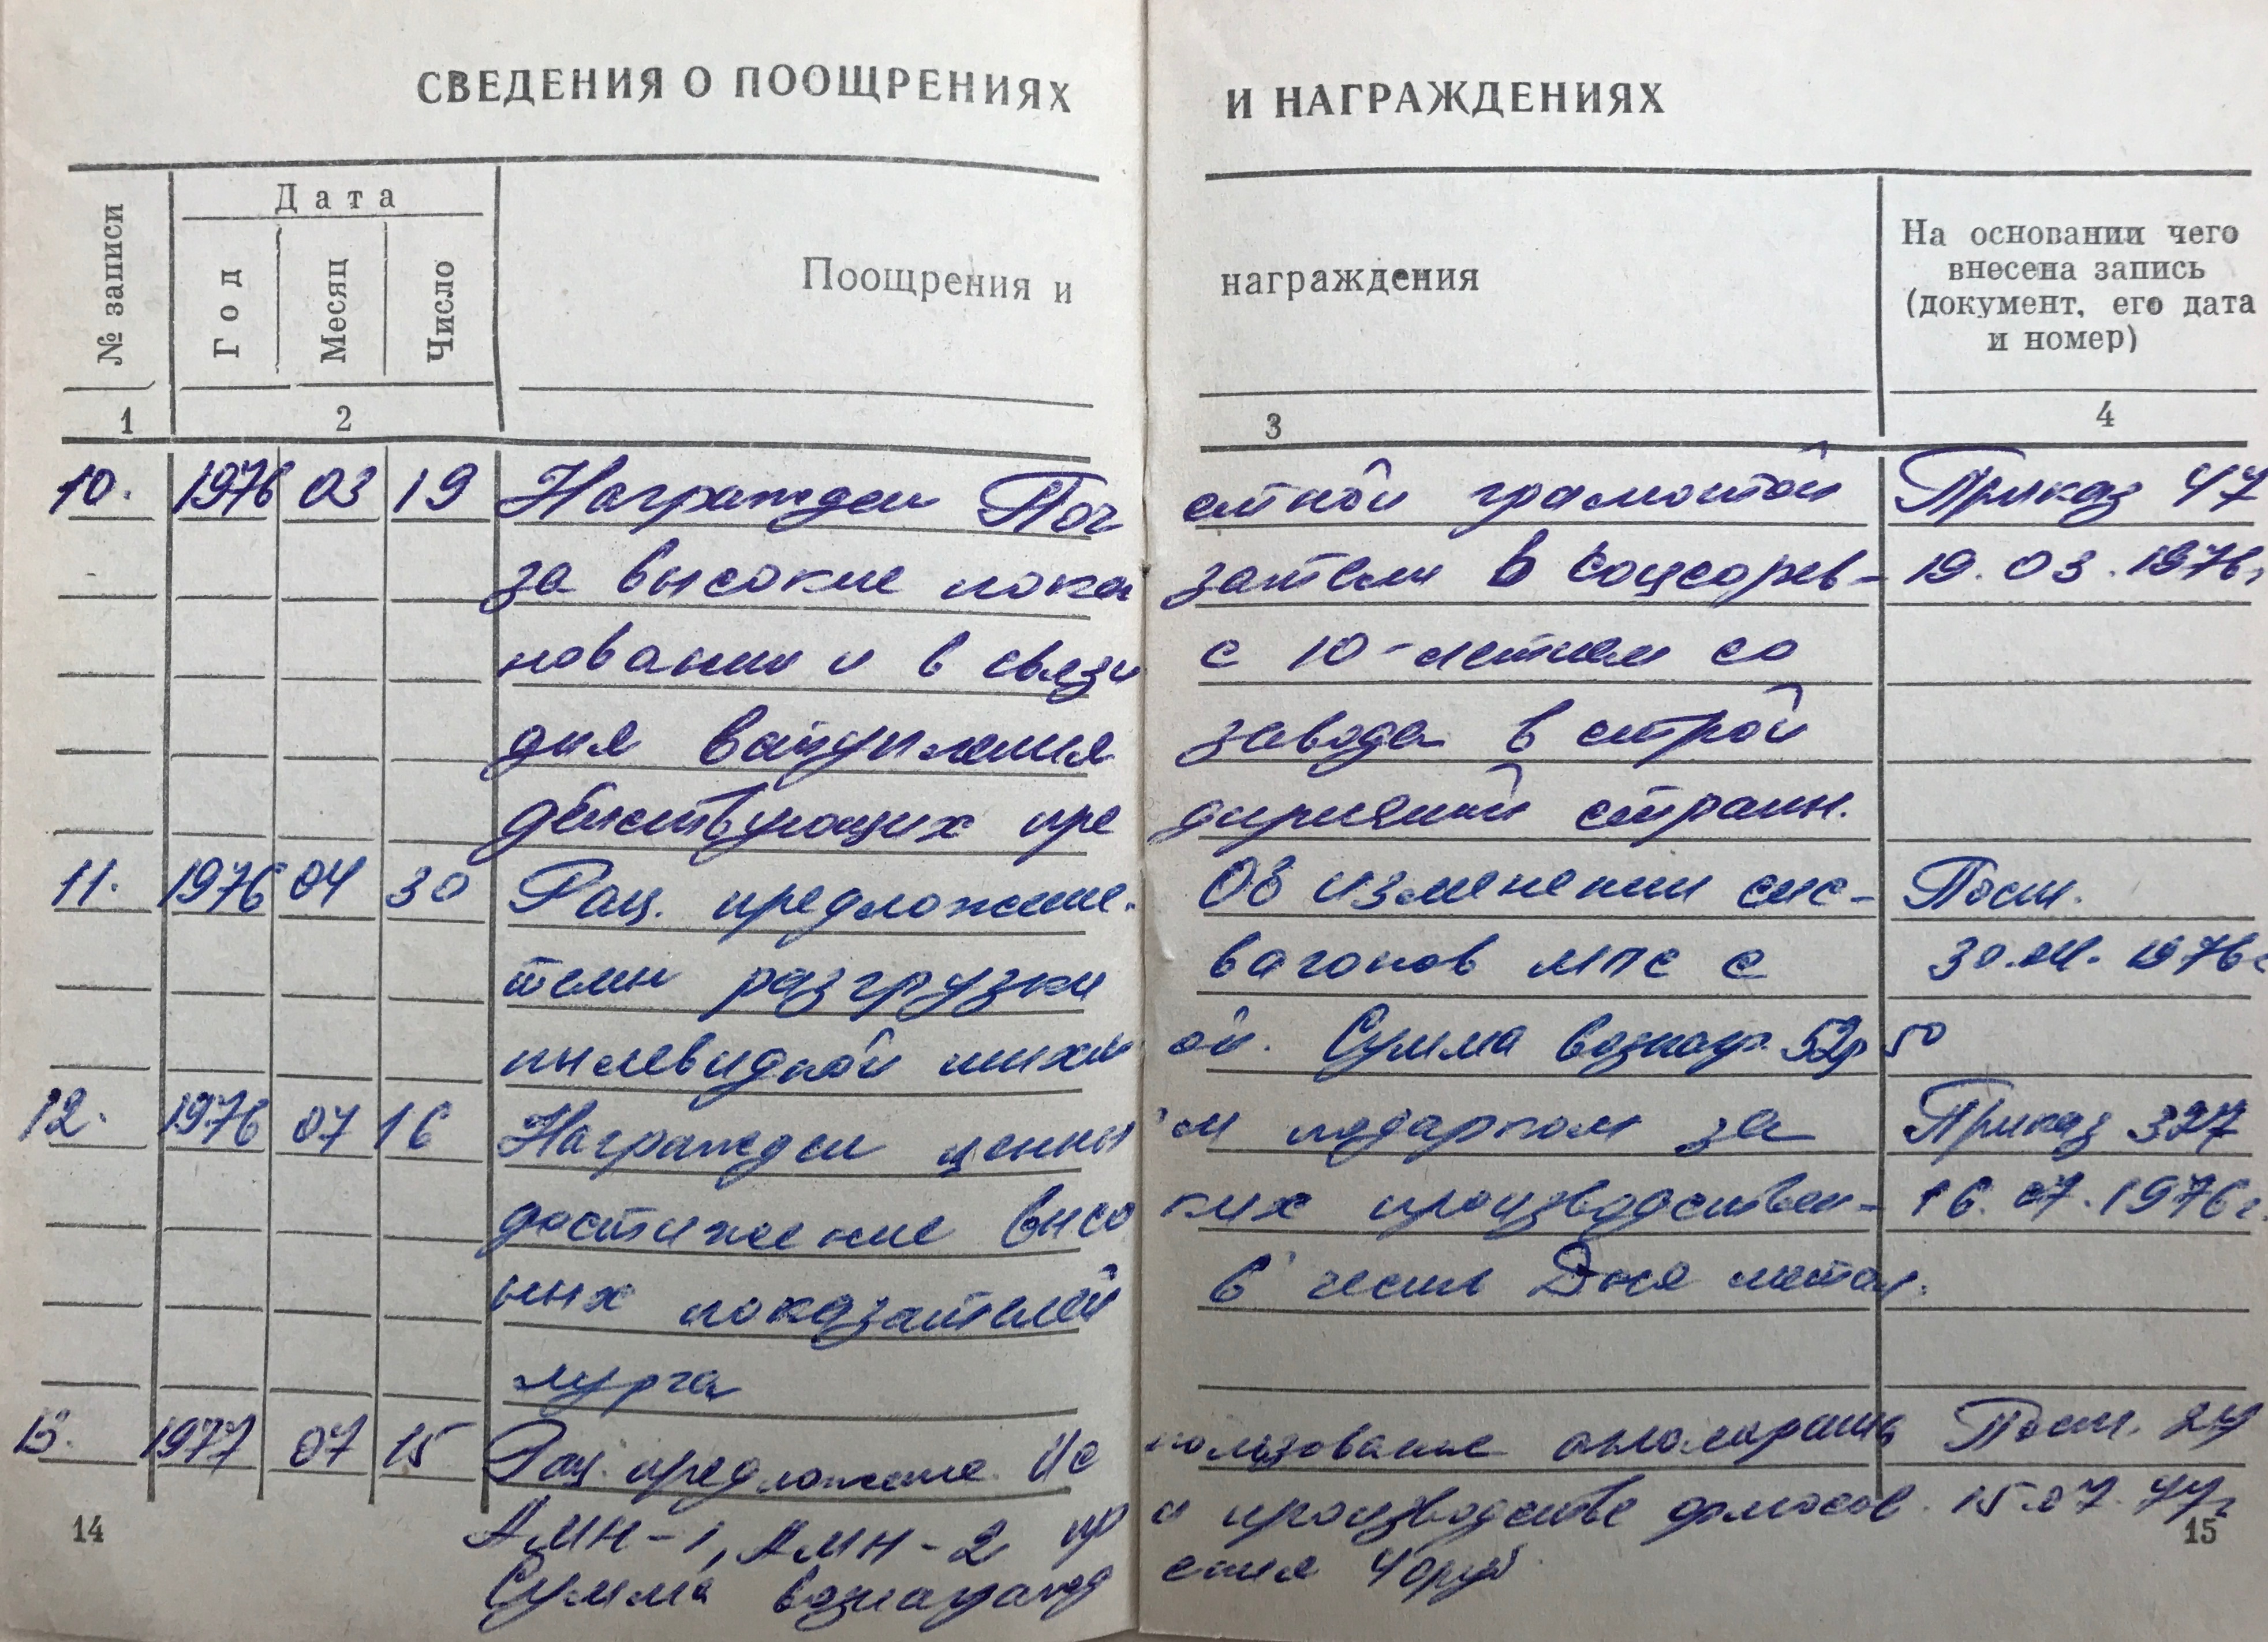 СВЕДЕНИЯ О ПООЩРЕНИЯХ И НАГРАЖДЕНИЯХ
№ записи
Дата
Год
Месяц
Число
Поощрения и награждения
На основании чего
внесена запись
(документ, его дата
и номер)
1 2 3 4
10. 1976 03 19 Награжден Почетной грамотой Приказ 47
за высокие показатели в соцсорев- 19.03.1976г
новании и в связи с 10-летием со
дня вступления завода в строй
действующих предприятий страны.
11. 1976 04 30 Рац. предложение. Об изменении сис- Пост.
темы разгрузки вагонов МПС с 30.04.1976г
пылевидной шихтой. Сумма вознагр. 52р 50
12. 1976 07 16 Награжден ценным подарком за Приказ 327
достижение высоких производствен- 16.07.1976г.
ных показателей в честь Дня метал.
лурга
13. 1977 07 15 Рац. предложение. Использование Пост. 24
АМН-1, АМН-2 при производстве 15.07.77г
Сумма вознаграждения 40руб.
14
15